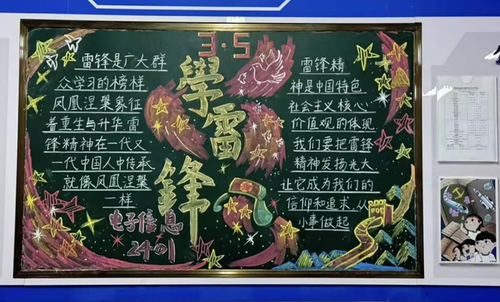 3·5
學雷鋒
雷锋是广大群
众学习的榜样
凤凰涅槃象征
着重生与升华雷
锋精神在一代又
一代中国人中传承
就像凤凰涅槃
一样
电子信息
24-01
雷锋精
神是中国特色
社会主义核心
价值观的体现
我们要把雷锋
精神发扬光大
让它成为我们的
信仰和追求,从
小事做起